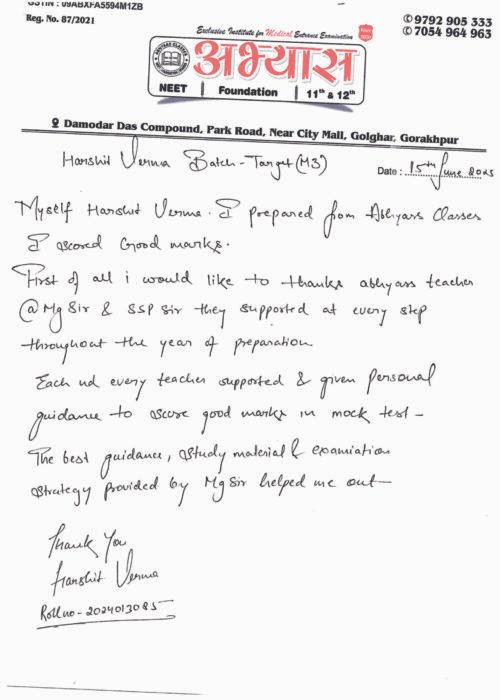 GSTIN : 09ABXFA5594M1ZB
Reg. No. 87/2021
Exclusive Institute for Medical Entrance Examination
✆ 9792 905 333
✆ 7054 964 963
अभ्यास
NEET | Foundation | 11th & 12th
Damodar Das Compound, Park Road, Near City Mall, Golghar, Gorakhpur
Harshit Verma Batch - Target (M3)
Date : 15th June 2025
Myself Harshit Verma. I prepared from Abhyass Classes
I scored Good marks.
First of all i would like to thanks abhyass teacher
@ Mg Sir & SSP Sir they supported at every step
throughout the year of preparation
Each nd every teacher supported & given personal
guidance to score good marks in mock test -
The best guidance, study material & examiation
strategy provided by Mg Sir helped me out -
Thank You
Harshit Verma
Roll no - 2024013085